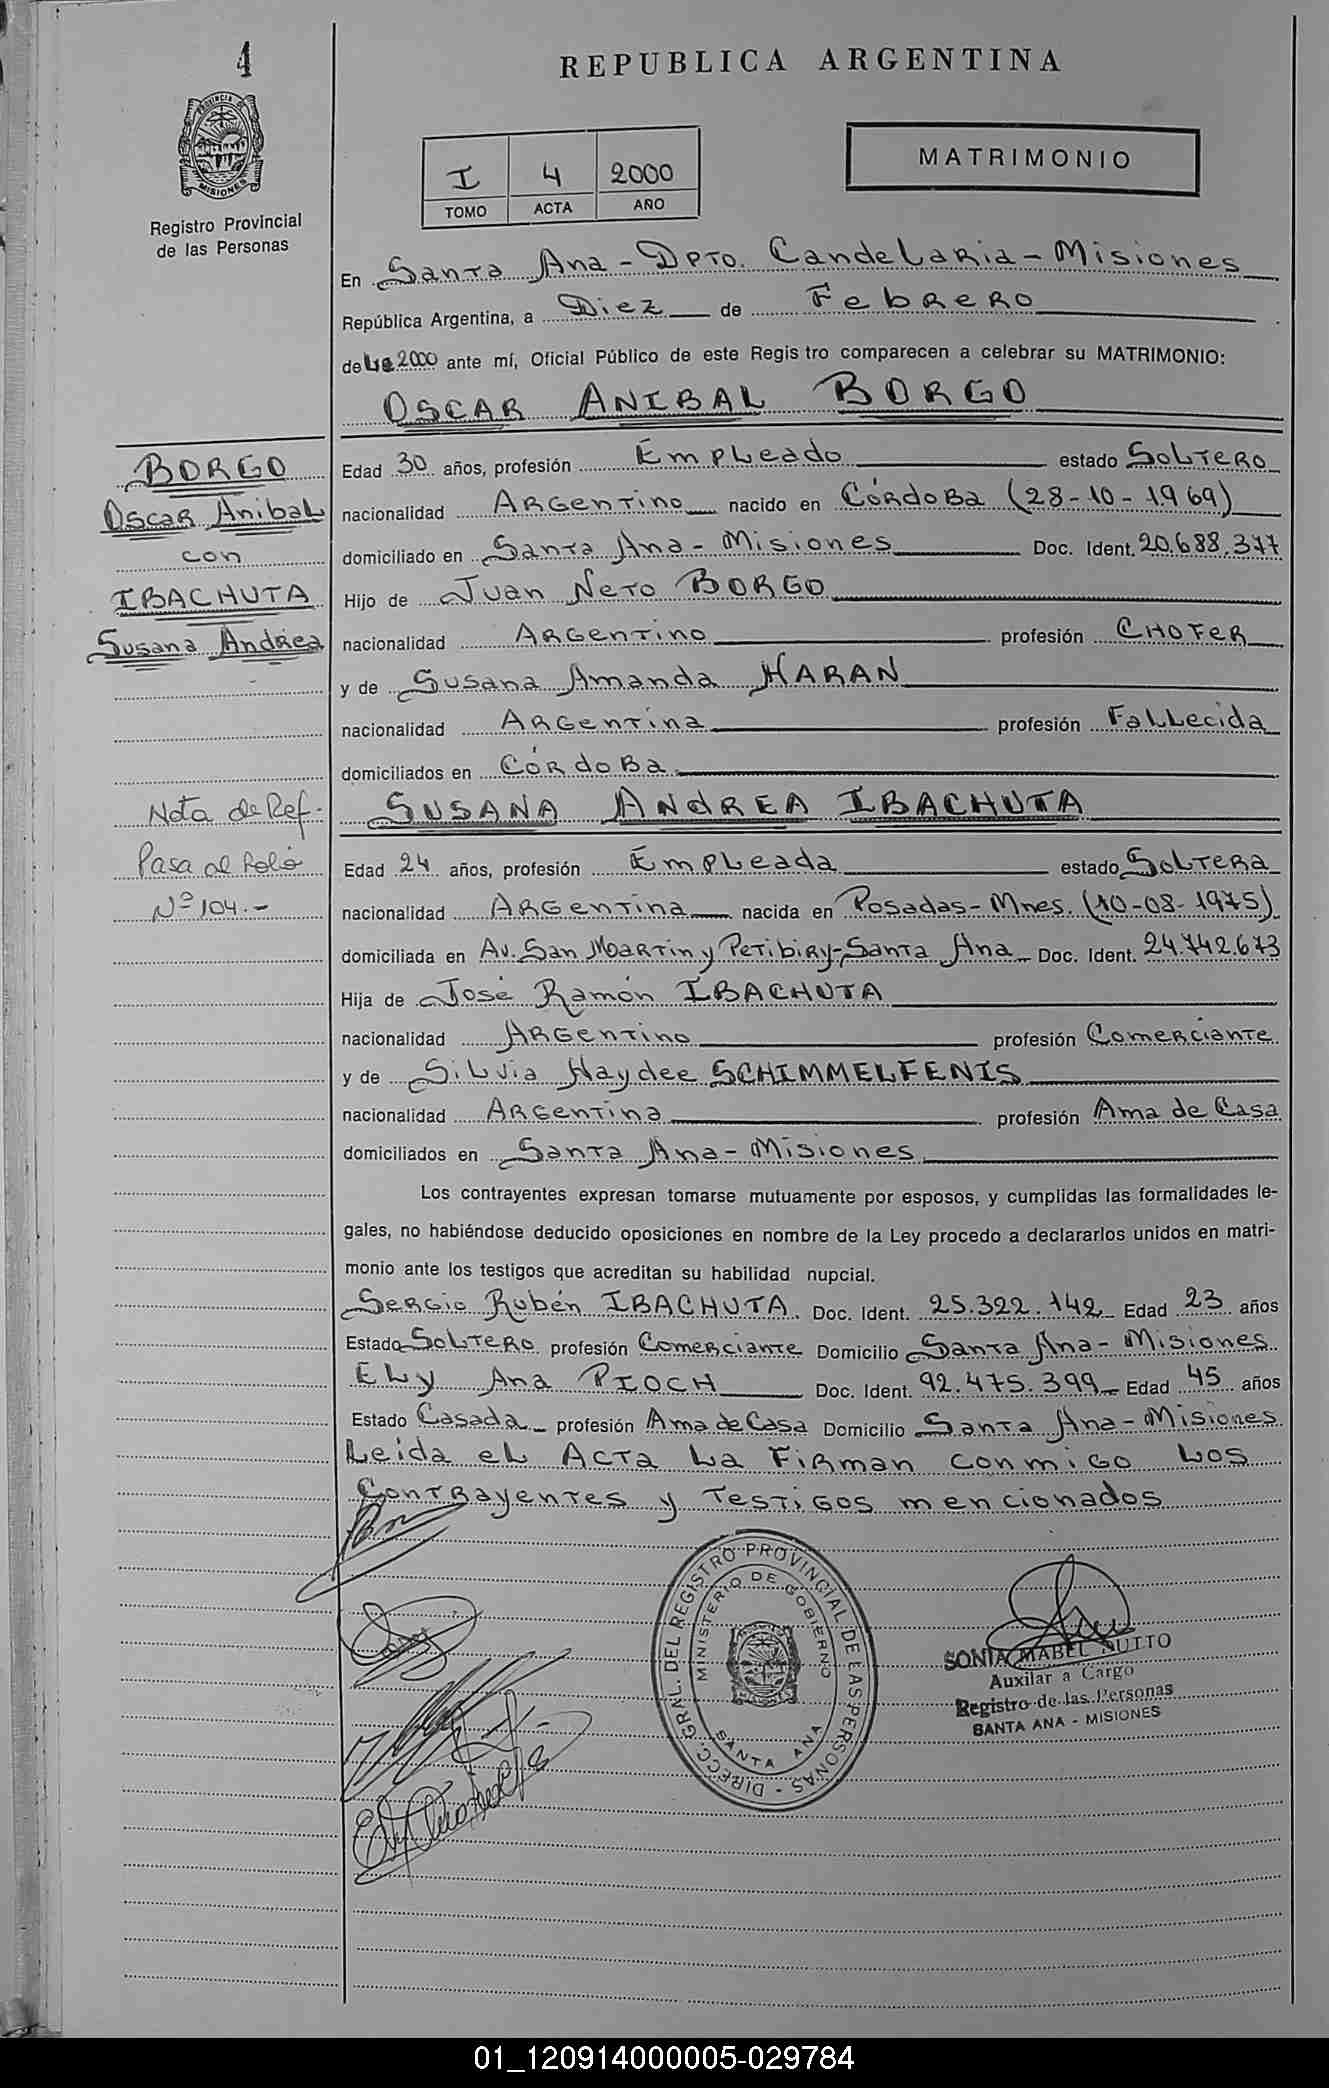 4
REPUBLICA ARGENTINA
PROVINCIA DE
MISIONES
Registro Provincial
de las Personas
I 4 2000
TOMO ACTA AÑO
MATRIMONIO
En Santa Ana - Dpto. Candelaria - Misiones
República Argentina, a Diez de Febrero
de 2000 ante mí, Oficial Público de este Registro comparecen a celebrar su MATRIMONIO:
OSCAR ANIBAL BORGO
Edad 30 años, profesión Empleado estado Soltero
nacionalidad Argentino nacido en Córdoba (28-10-1969)
domiciliado en Santa Ana - Misiones Doc. Ident. 20.688.377
Hijo de Juan Neto BORGO
nacionalidad Argentino profesión CHOFER
y de Susana Amanda HARAN
nacionalidad Argentina profesión Fallecida
domiciliados en Córdoba
BORGO
Oscar Anibal
con
IBACHUTA
Susana Andrea
Nota de Ref.
Pasa al folio
Nº 104.-
SUSANA ANDREA IBACHUTA
Edad 24 años, profesión Empleada estado Soltera
nacionalidad Argentina nacida en Posadas - Mnes. (10-08-1975)
domiciliada en Av. San Martin y Petibiry - Santa Ana Doc. Ident. 24.742.673
Hija de José Ramón IBACHUTA
nacionalidad Argentino profesión Comerciante
y de Silvia Haydee SCHIMMELFENIS
nacionalidad Argentina profesión Ama de Casa
domiciliados en Santa Ana - Misiones
Los contrayentes expresan tomarse mutuamente por esposos, y cumplidas las formalidades le-
gales, no habiéndose deducido oposiciones en nombre de la Ley procedo a declararlos unidos en matri-
monio ante los testigos que acreditan su habilidad nupcial.
Sergio Rubén IBACHUTA Doc. Ident. 25.322.142 Edad 23 años
Estado Soltero profesión Comerciante Domicilio Santa Ana - Misiones
Ely Ana PIOCH Doc. Ident. 92.475.399 Edad 45 años
Estado Casada profesión Ama de Casa Domicilio Santa Ana - Misiones
Leida el Acta la firman conmigo los
Contrayentes y Testigos mencionados
DIRECC. GRAL. DEL REGISTRO PROVINCIAL DE LAS PERSONAS
MINISTERIO DE GOBIERNO
SANTA ANA
SONIA MABEL
Auxilar a Cargo
Registro de las Personas
SANTA ANA - MISIONES
01_120914000005-029784